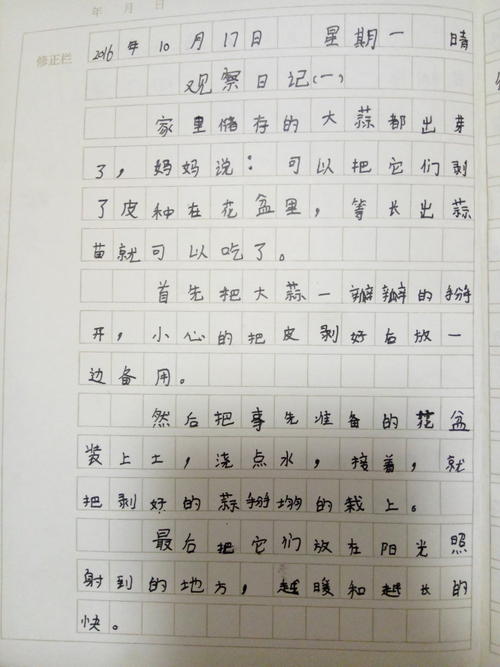 年 月 日
修正栏
2016年10月17日 星期一 晴
观察日记(一)
家里储存的大蒜都出芽
了，妈妈说：可以把它们剥
了皮种在花盆里，等长出蒜
苗就可以吃了。
首先把大蒜一瓣瓣的掰
开，小心的把皮剥好后放一
边备用。
然后把事先准备的花盆
装上土，浇点水，接着，就
把剥好的蒜的栽上。
最后把它们放在阳光照
射到的地方，越暖和越长的
快。